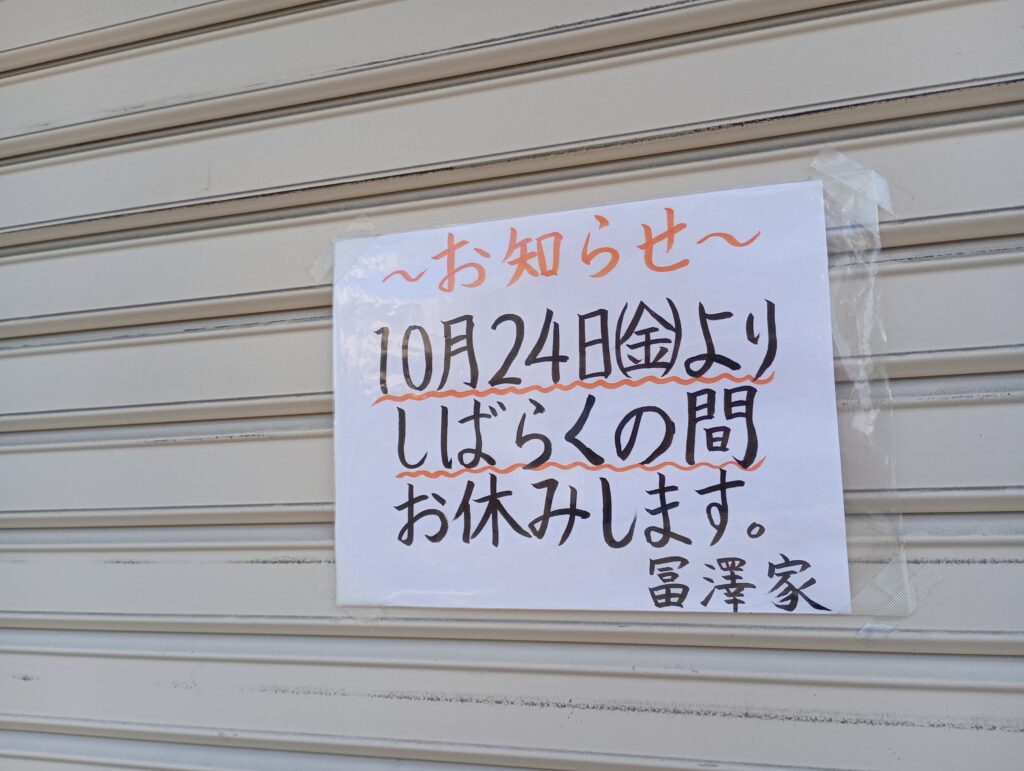 ～お知らせ～
10月24日㈮より
しばらくの間
お休みします。
冨澤家